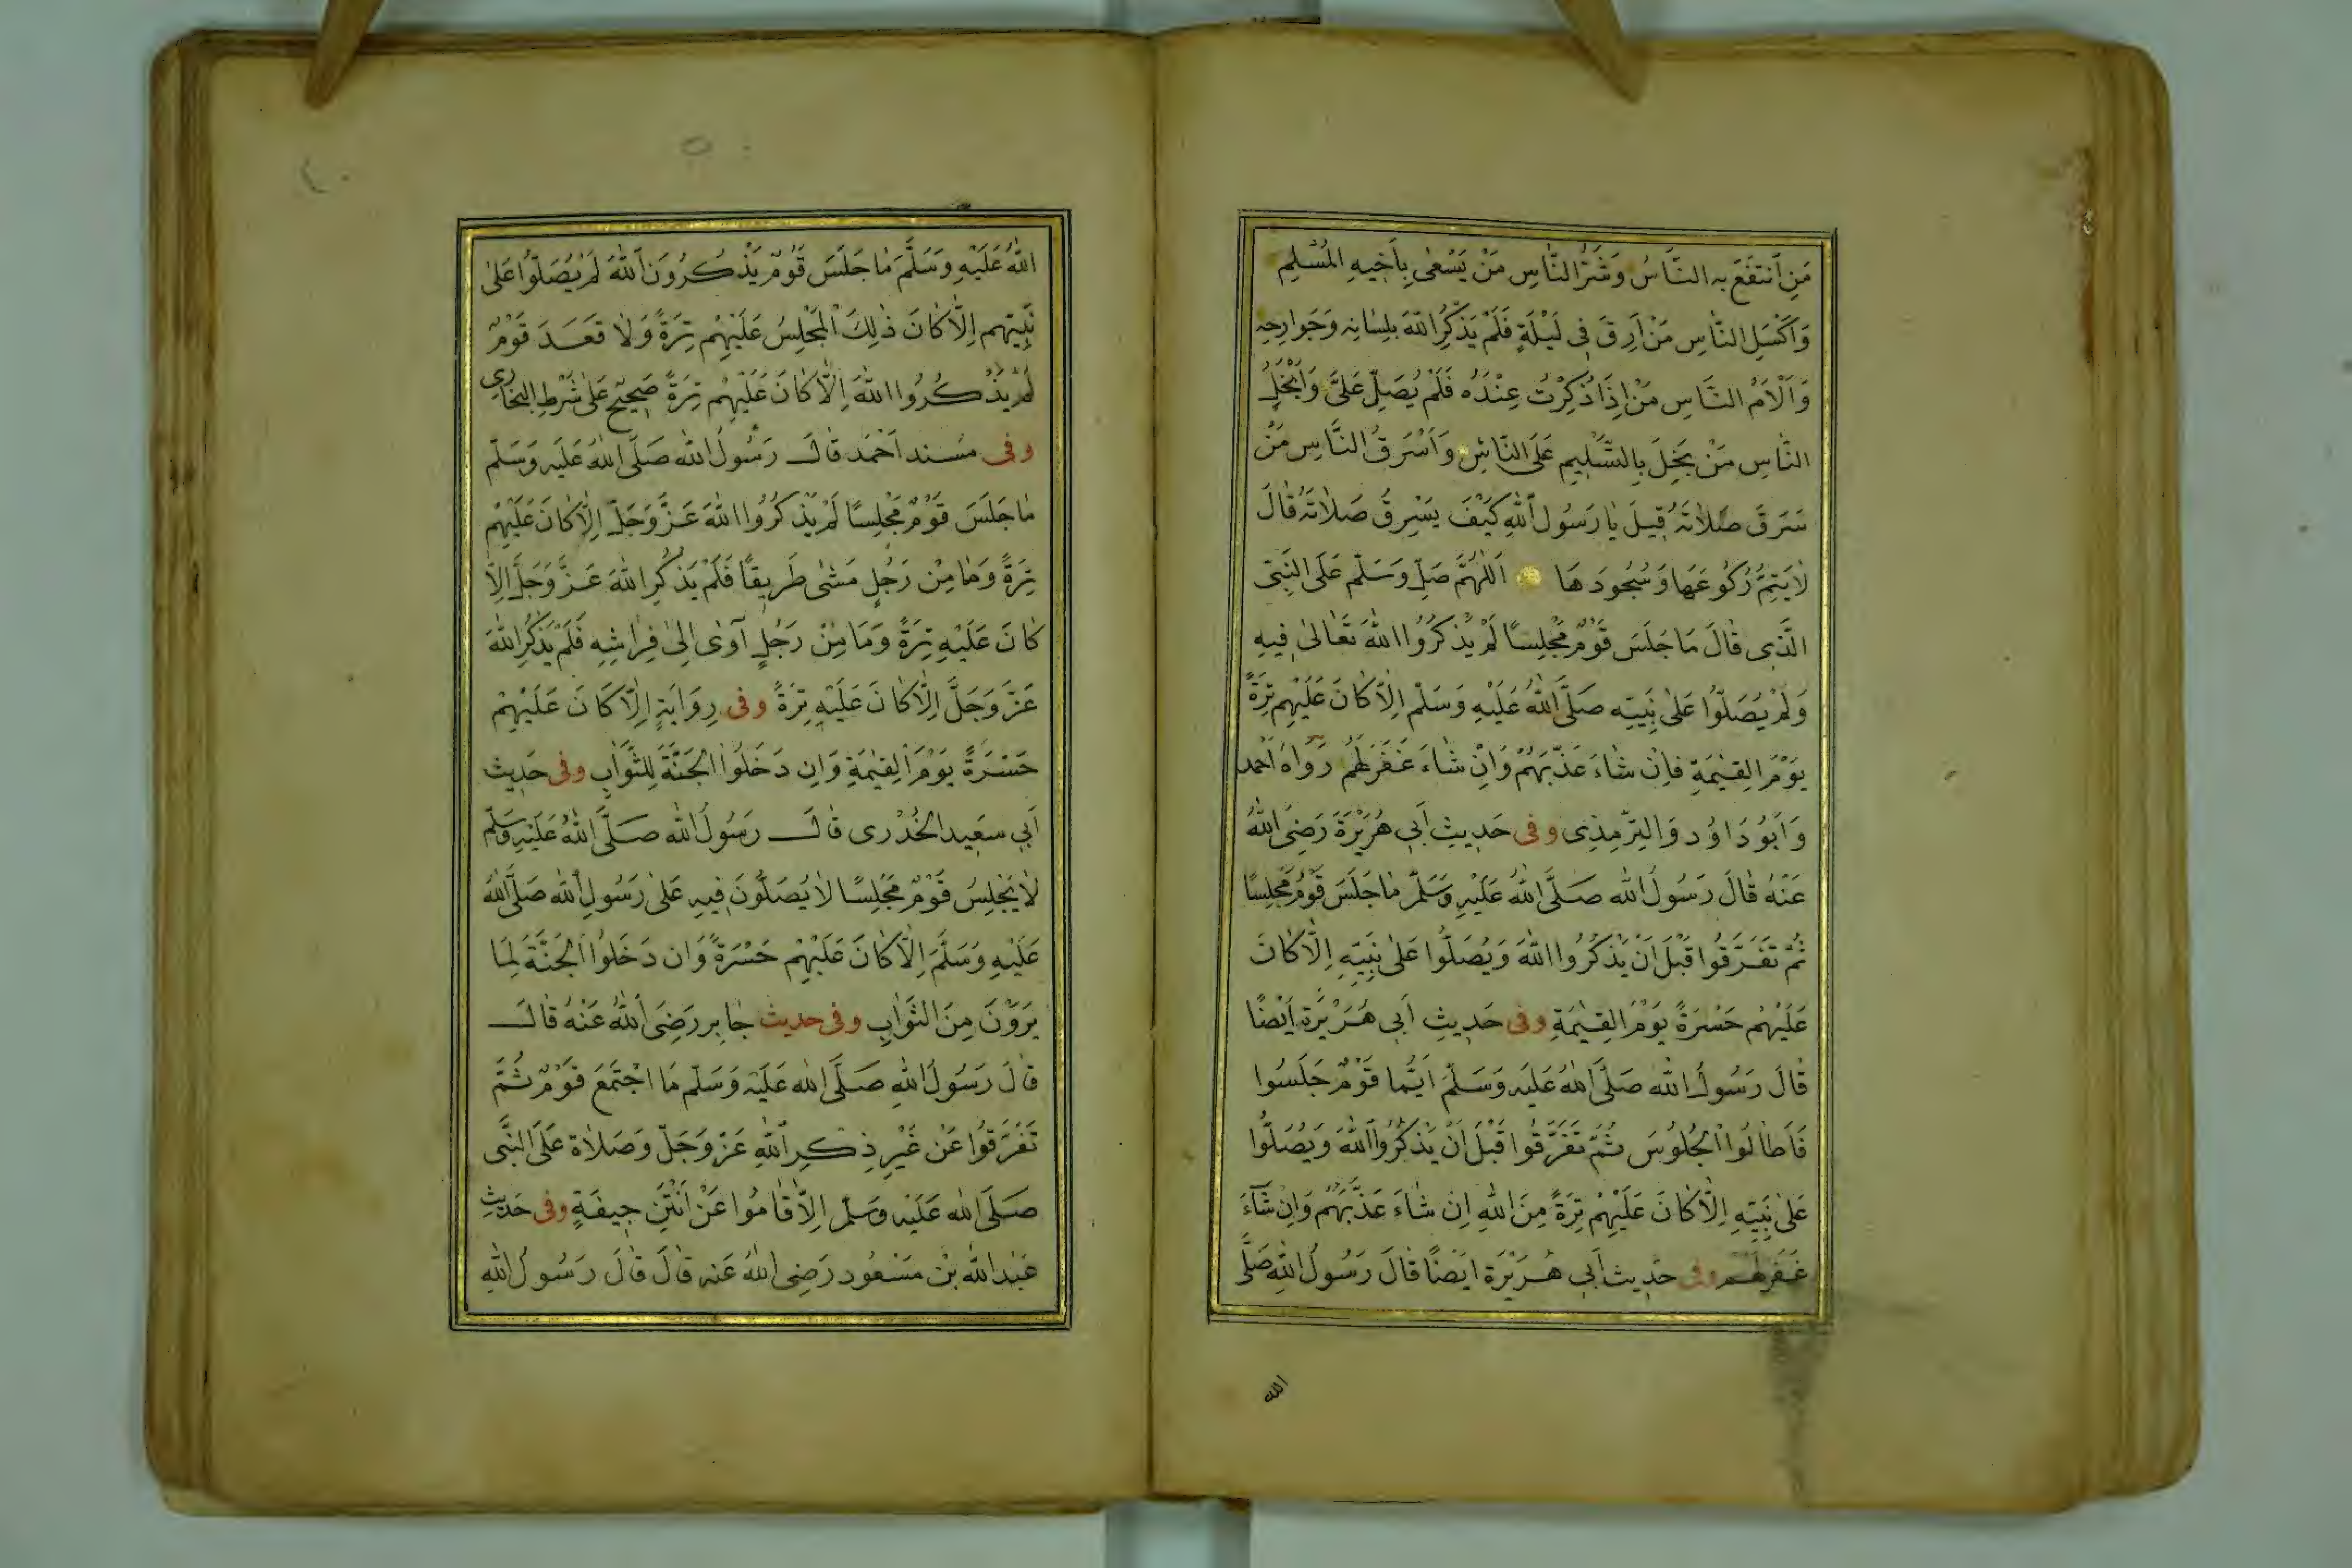 مَنِ انْتَفَعَ بِهِ النَّاسُ وَشَرُّ النَّاسِ مَنْ يَسْعٰى بِأَخِيهِ الْمُسْلِمِ
وَأَكْسَلُ النَّاسِ مَنْ أَرِقَ فِى لَيْلَةٍ فَلَمْ يَذْكُرِ اللّٰهَ بِلِسَانِهِ وَجَوَارِحِهِ
وَأَلْأَمُ النَّاسِ مَنْ إِذَا ذُكِرْتُ عِنْدَهُ فَلَمْ يُصَلِّ عَلَىَّ وَأَبْخَلُ
النَّاسِ مَنْ بَخِلَ بِالتَّسْلِيمِ عَلَى النَّاسِ وَأَسْرَقُ النَّاسِ مَنْ
سَرَقَ صَلَاتَهُ قِيلَ يَا رَسُولَ اللّٰهِ كَيْفَ يَسْرِقُ صَلَاتَهُ قَالَ
لَا يَتِمُّ رُكُوعَهَا وَسُجُودَهَا اَللّٰهُمَّ صَلِّ وَسَلِّمْ عَلَى النَّبِىِّ
الَّذِى قَالَ مَا جَلَسَ قَوْمٌ مَجْلِسًا لَمْ يَذْكُرُوا اللّٰهَ تَعَالٰى فِيهِ
وَلَمْ يُصَلُّوا عَلٰى نَبِيِّهِ صَلَّى اللّٰهُ عَلَيْهِ وَسَلَّمَ إِلَّا كَانَ عَلَيْهِمْ تِرَةً
يَوْمَ الْقِيٰمَةِ فَإِنْ شَاءَ عَذَّبَهُمْ وَإِنْ شَاءَ غَفَرَ لَهُمْ رَوَاهُ أَحْمَد
وَأَبُو دَاوُد وَالتِّرْمِذِى وَفِى حَدِيثِ أَبِى هُرَيْرَةَ رَضِىَ اللّٰهُ
عَنْهُ قَالَ رَسُولُ اللّٰه صَلَّى اللّٰهُ عَلَيْهِ وَسَلَّمَ مَا جَلَسَ قَوْمٌ مَجْلِسًا
ثُمَّ تَفَرَّقُوا قَبْلَ أَنْ يَذْكُرُوا اللّٰهَ وَيُصَلُّوا عَلٰى نَبِيِّهِ إِلَّا كَانَ
عَلَيْهِمْ حَسْرَةً يَوْمَ الْقِيٰمَةِ وَفِى حَدِيثِ أَبِى هُرَيْرَة أَيْضًا
قَالَ رَسُولُ اللّٰه صَلَّى اللّٰهُ عَلَيْهِ وَسَلَّمَ أَيُّمَا قَوْمٌ جَلَسُوا
فَأَطَالُوا الْجُلُوسَ ثُمَّ تَفَرَّقُوا قَبْلَ أَنْ يَذْكُرُوا اللّٰهَ وَيُصَلُّوا
عَلٰى نَبِيِّهِ إِلَّا كَانَ عَلَيْهِمْ تِرَةً مِنَ اللّٰهِ إِنْ شَاءَ عَذَّبَهُمْ وَإِنْ شَآءَ
غَفَرَ لَهُمْ وَفِى حَدِيث أَبِى هُرَيْرَة أَيْضًا قَالَ رَسُولُ اللّٰهِ صَلَّى
الله
اللّٰهُ عَلَيْهِ وَسَلَّمَ مَا جَلَسَ قَوْمٌ يَذْكُرُونَ اللّٰهَ لَمْ يُصَلُّوا عَلٰى
نَبِيِّهِم إِلَّا كَانَ ذٰلِكَ الْمَجْلِسُ عَلَيْهِمْ تِرَةً وَلَا قَعَدَ قَوْمٌ
لَمْ يَذْكُرُوا اللّٰهَ إِلَّا كَانَ عَلَيْهِمْ تِرَةً صَحِيحٌ عَلٰى شَرْطِ الْبُخَارِي
وَفِى مُسْنَد أَحْمَد قَالَ رَسُولُ اللّٰه صَلَّى اللّٰهُ عَلَيْهِ وَسَلَّمَ
مَا جَلَسَ قَوْمٌ مَجْلِسًا لَمْ يَذْكُرُوا اللّٰهَ عَزَّ وَجَلَّ إِلَّا كَانَ عَلَيْهِمْ
تِرَةً وَمَا مِنْ رَجُلٍ مَشٰى طَرِيقًا فَلَمْ يَذْكُرِ اللّٰهَ عَزَّ وَجَلَّ إِلَّا
كَانَ عَلَيْهِ تِرَةً وَمَا مِنْ رَجُلٍ آوٰى إِلٰى فِرَاشِهِ فَلَمْ يَذْكُرِ اللّٰهَ
عَزَّ وَجَلَّ إِلَّا كَانَ عَلَيْهِ تِرَةً وَفِى رِوَايَةٍ إِلَّا كَانَ عَلَيْهِمْ
حَسْرَةً يَوْمَ الْقِيٰمَةِ وَإِن دَخَلُوا الْجَنَّةَ لِلثَّوَابِ وَفِى حَدِيث
أَبِى سَعِيد الْخُدْرِى قَالَ رَسُولُ اللّٰه صَلَّى اللّٰهُ عَلَيْهِ وَسَلَّمَ
لَا يَجْلِسُ قَوْمٌ مَجْلِسًا لَا يُصَلُّونَ فِيهِ عَلٰى رَسُولِ اللّٰه صَلَّى اللّٰهُ
عَلَيْهِ وَسَلَّمَ إِلَّا كَانَ عَلَيْهِمْ حَسْرَةً وَإِن دَخَلُوا الْجَنَّةَ لِمَا
يَرَوْنَ مِنَ الثَّوَابِ وَفِى حَدِيث جَابِر رَضِىَ اللّٰهُ عَنْهُ قَالَ
قَالَ رَسُولُ اللّٰهِ صَلَّى اللّٰه عَلَيْهِ وَسَلَّمَ مَا اجْتَمَعَ قَوْمٌ ثُمَّ
تَفَرَّقُوا عَنْ غَيْرِ ذِكْرِ اللّٰهِ عَزَّ وَجَلَّ وَصَلَاة عَلَى النَّبِى
صَلَّى اللّٰه عَلَيْهِ وَسَلَّمَ إِلَّا قَامُوا عَنْ أَنْتَنِ جِيفَةٍ وَفِى حَدِيثِ
عَبْد اللّٰه بْن مَسْعُود رَضِىَ اللّٰهُ عَنْهُ قَالَ قَالَ رَسُولُ اللّٰهِ